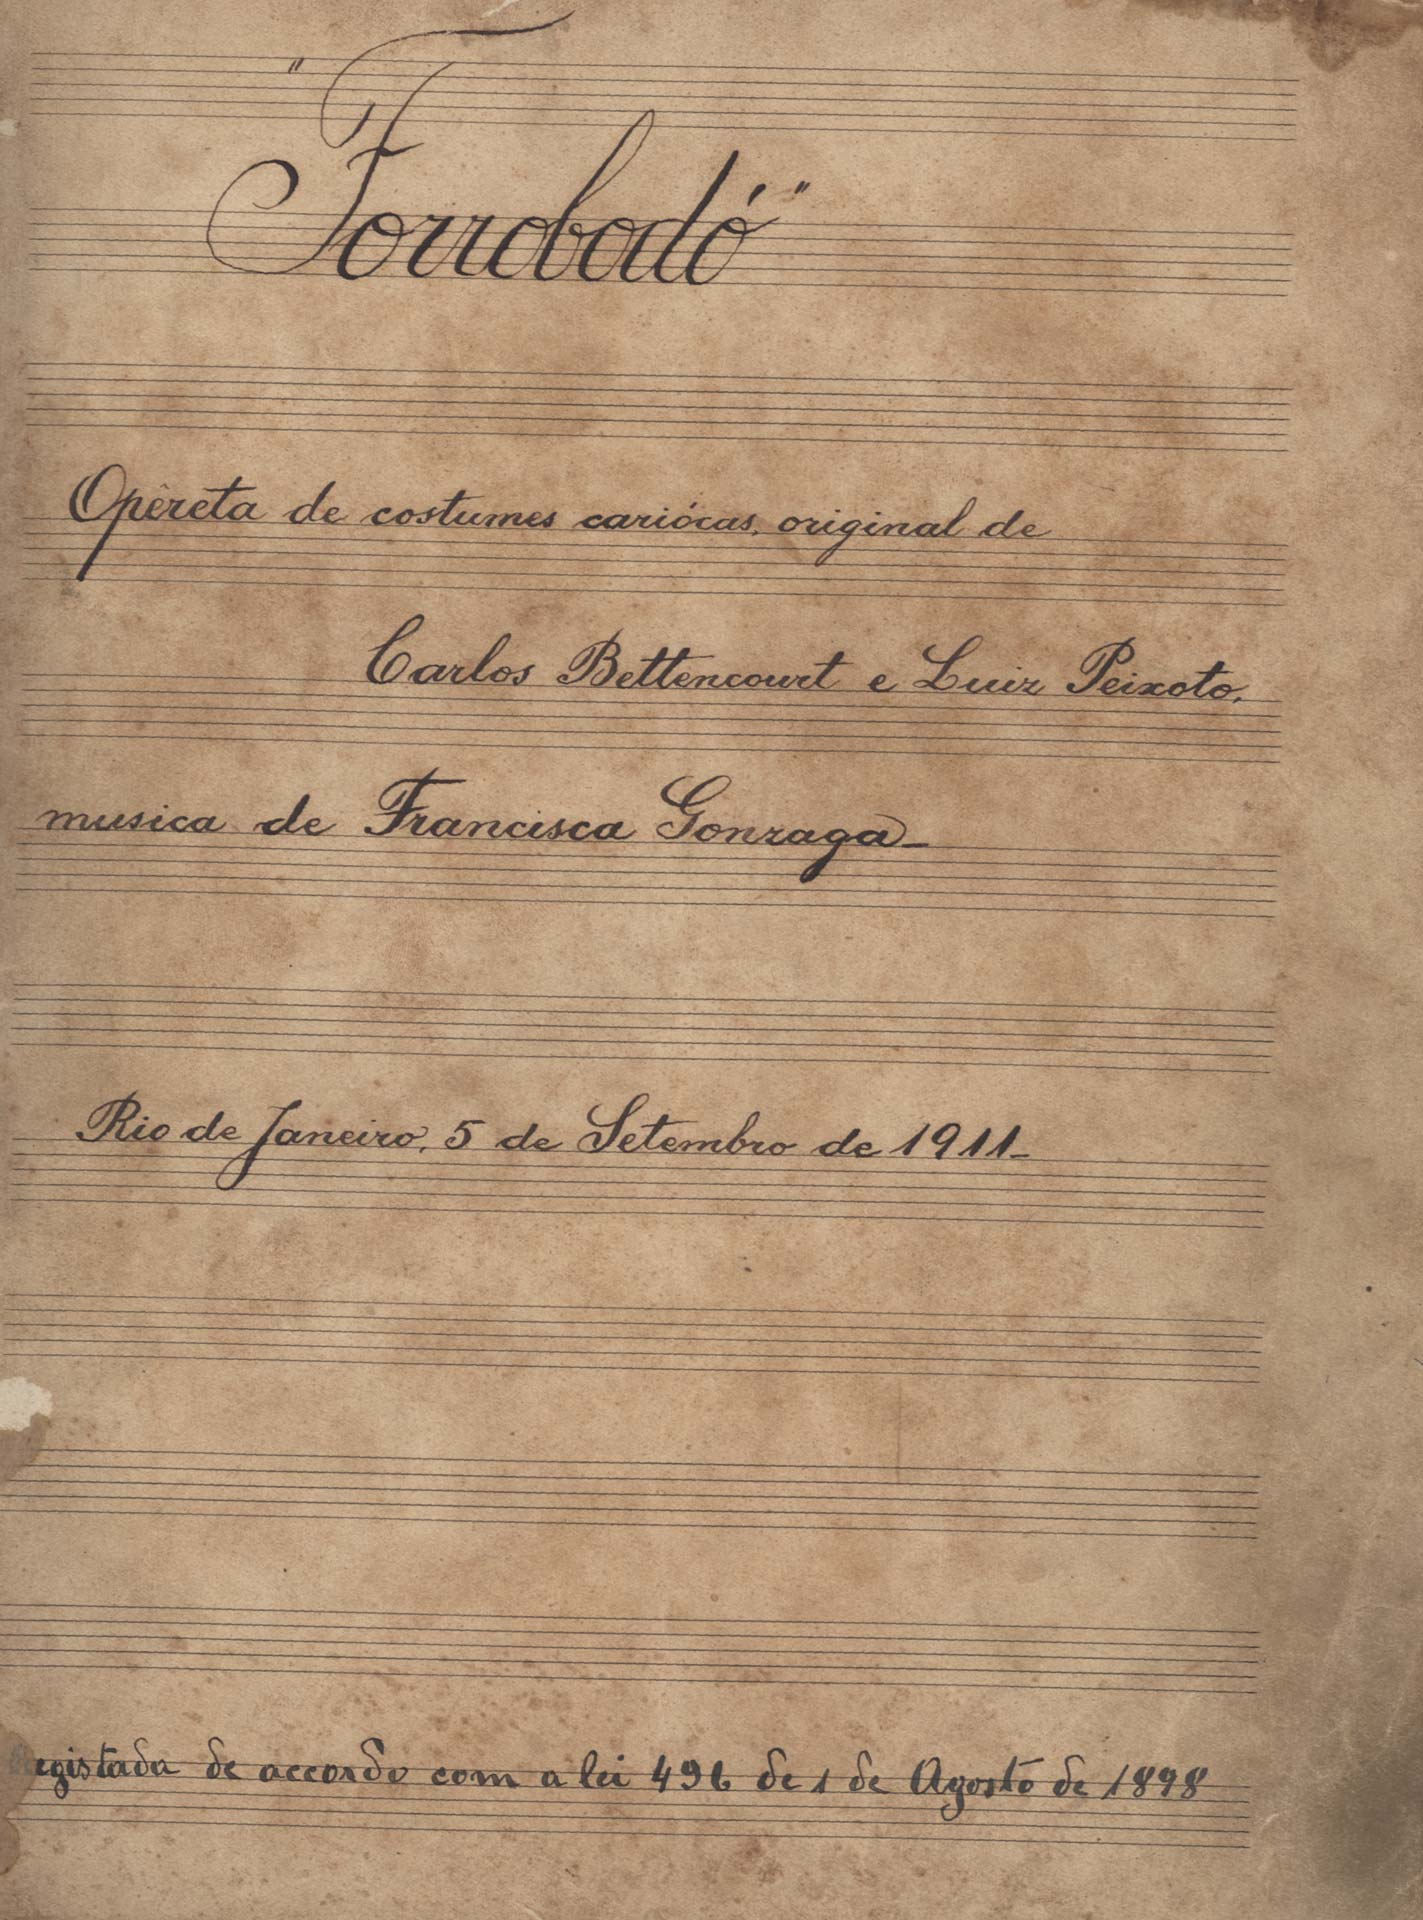 "Forrobodó"
Opèreta de costumes cariócas, original de
Carlos Bettencourt e Luiz Peixoto,
musica de Francisca Gonzaga_
Rio de Janeiro, 5 de Setembro de 1911_
Registada de accordo com a lei 496 de 1 de Agosto de 1898